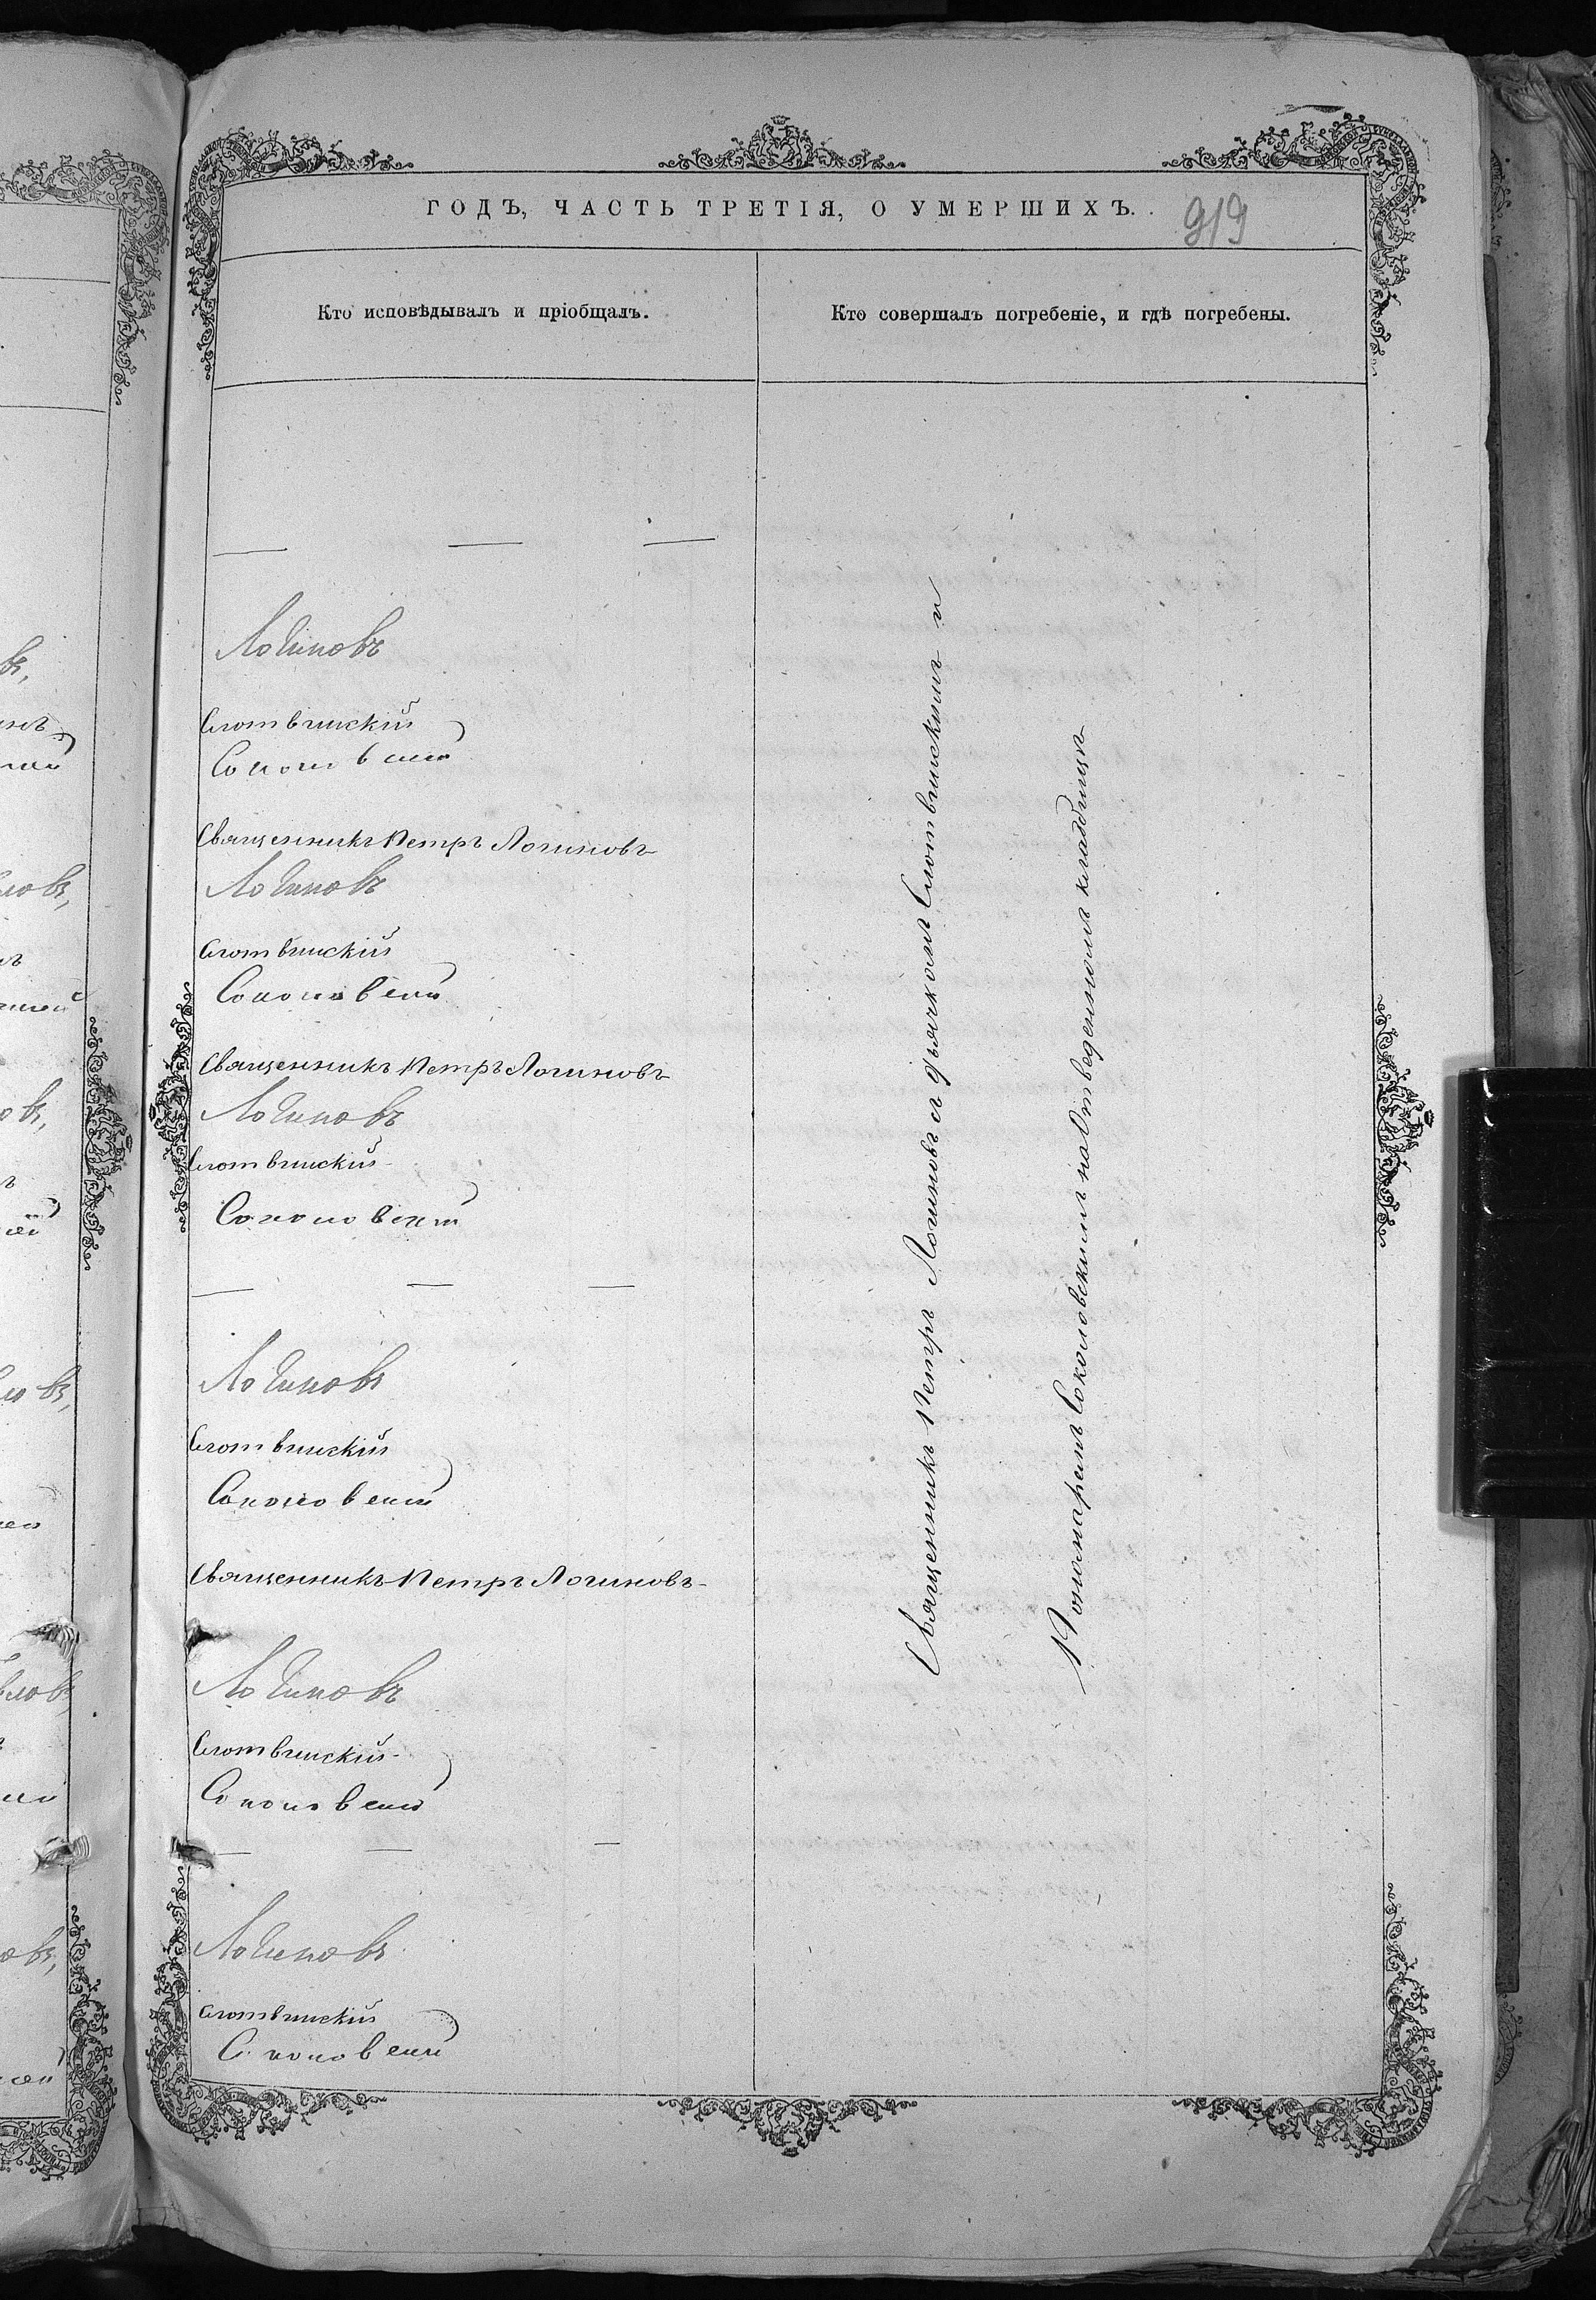 ГОДЪ, ЧАСТЬ ТРЕТІЯ, О УМЕРШИХЪ.
919
Кто исповѣдывалъ и пріобщалъ.
Кто совершалъ погребеніе, и гдѣ погребены.
— — —
Логиновъ
Слотвинскій
Соколовскій
Священникъ Петръ Логиновъ
Логиновъ
Слотвинскій
Соколовскій
Священникъ Петръ Логиновъ
Логиновъ
Слотвинскій
Соколовскій
— — —
Логиновъ
Слотвинскій
Соколовскій
Священникъ Петръ Логиновъ
Логиновъ
Слотвинскій
Соколовскій
— — —
Логиновъ
Слотвинскій
Соколовскій
Священникъ Петръ Логиновъ съ дьячкомъ Слотвинскимъ и
Пономаремъ Соколовскимъ на отведенномъ кладбищѣ